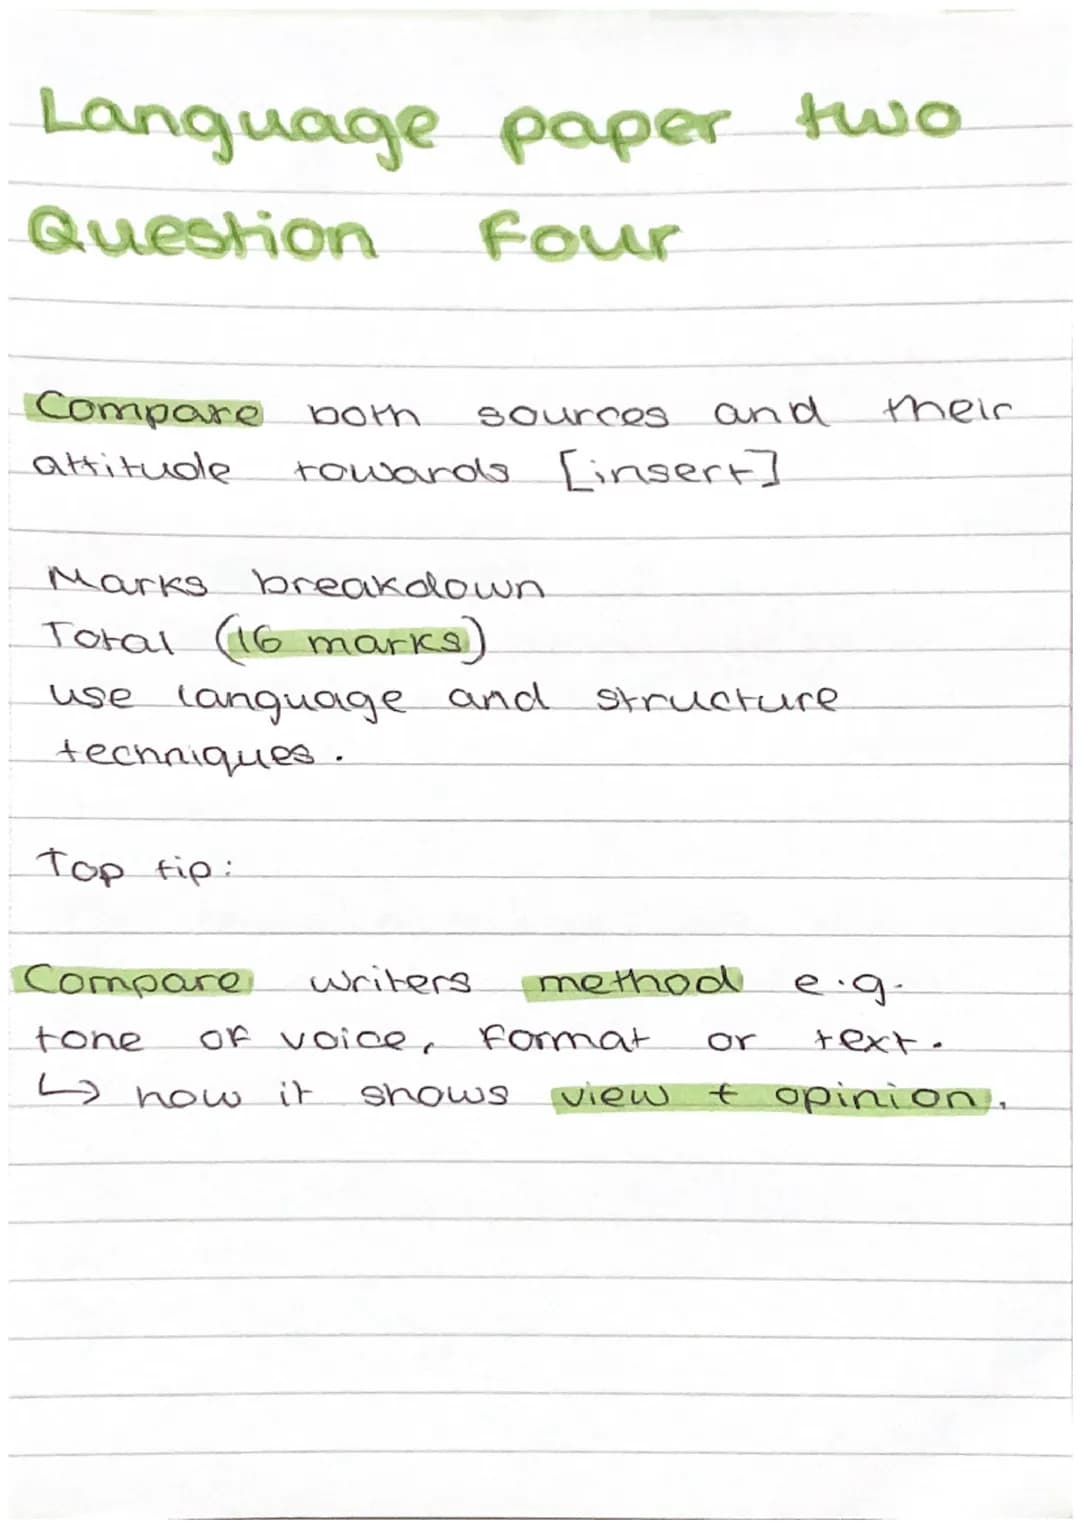 Language paper two
Question Four
Compare both sources and their
attitude towards [insert]
Marks breakdown
Total (16 marks)
use language and structure
techniques.
Top tip:
Compare writers method e.g.
tone of voice, format or text.
↳ how it shows view + opinion.